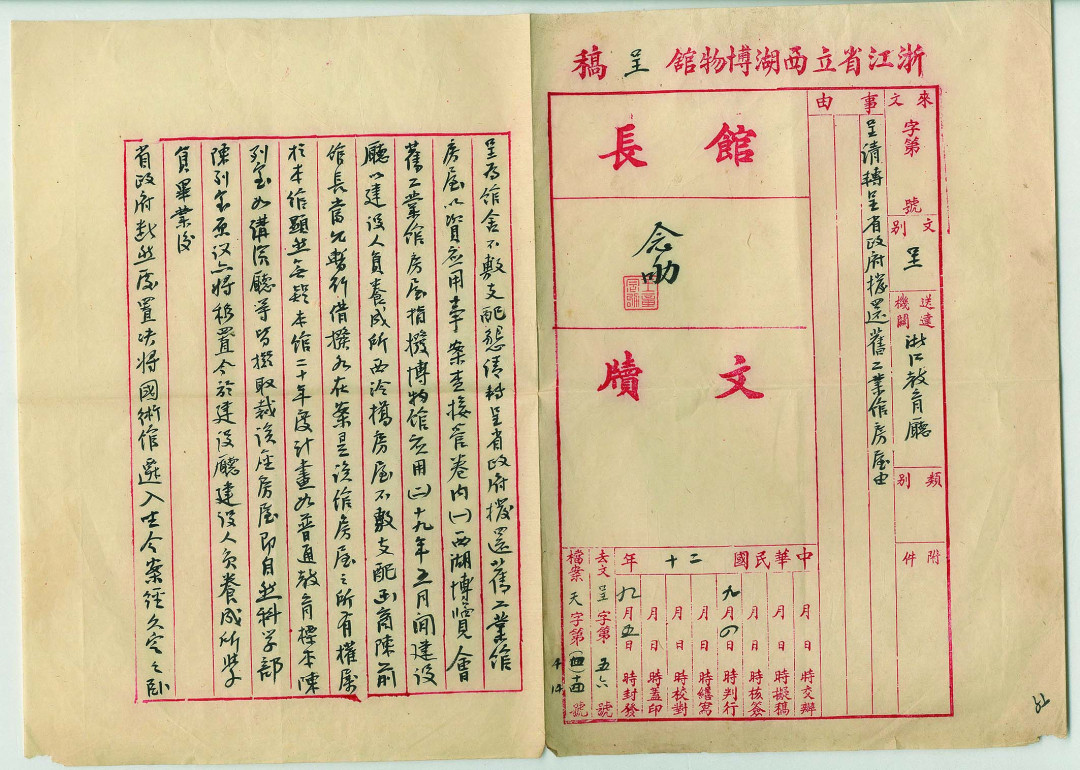 浙江省立西湖博物館呈稿
來文 字第 號
事由 呈請轉呈省政府撥還舊工業館房屋由
文別 呈
送達機關 浙江教育廳
類別
附件
館長
念劬
文牘
中華民國二十年
月 日 時交辦
月 日 時擬稿
月 日 時核簽
九月四日 時判行
月 日 時繕寫
月 日 時校對
月 日 時蓋印
九月五日 時封發
去文呈字第五六號
檔案天字第 號
呈為館舍不敷支配懇請轉呈省政府撥還舊工業館
房屋以資應用事案查接管卷內(一)西湖博覽會
舊工業館房屋指撥博物館應用(二)十九年五月間建設
廳以建設人員養成所西泠橋房屋不敷支配函商陳前
館長當允暫行借撥各在案是該館房屋之所有權屬
於本館顯然無疑本館二十年度計畫如普通教育標本陳
列室如講演廳等皆擬取裁該座房屋即自然科學部
陳列室原議亦將移置今於建設廳建設人員養成所學
員畢業後
省政府 然處置決將國術館遷入 今案經久定之